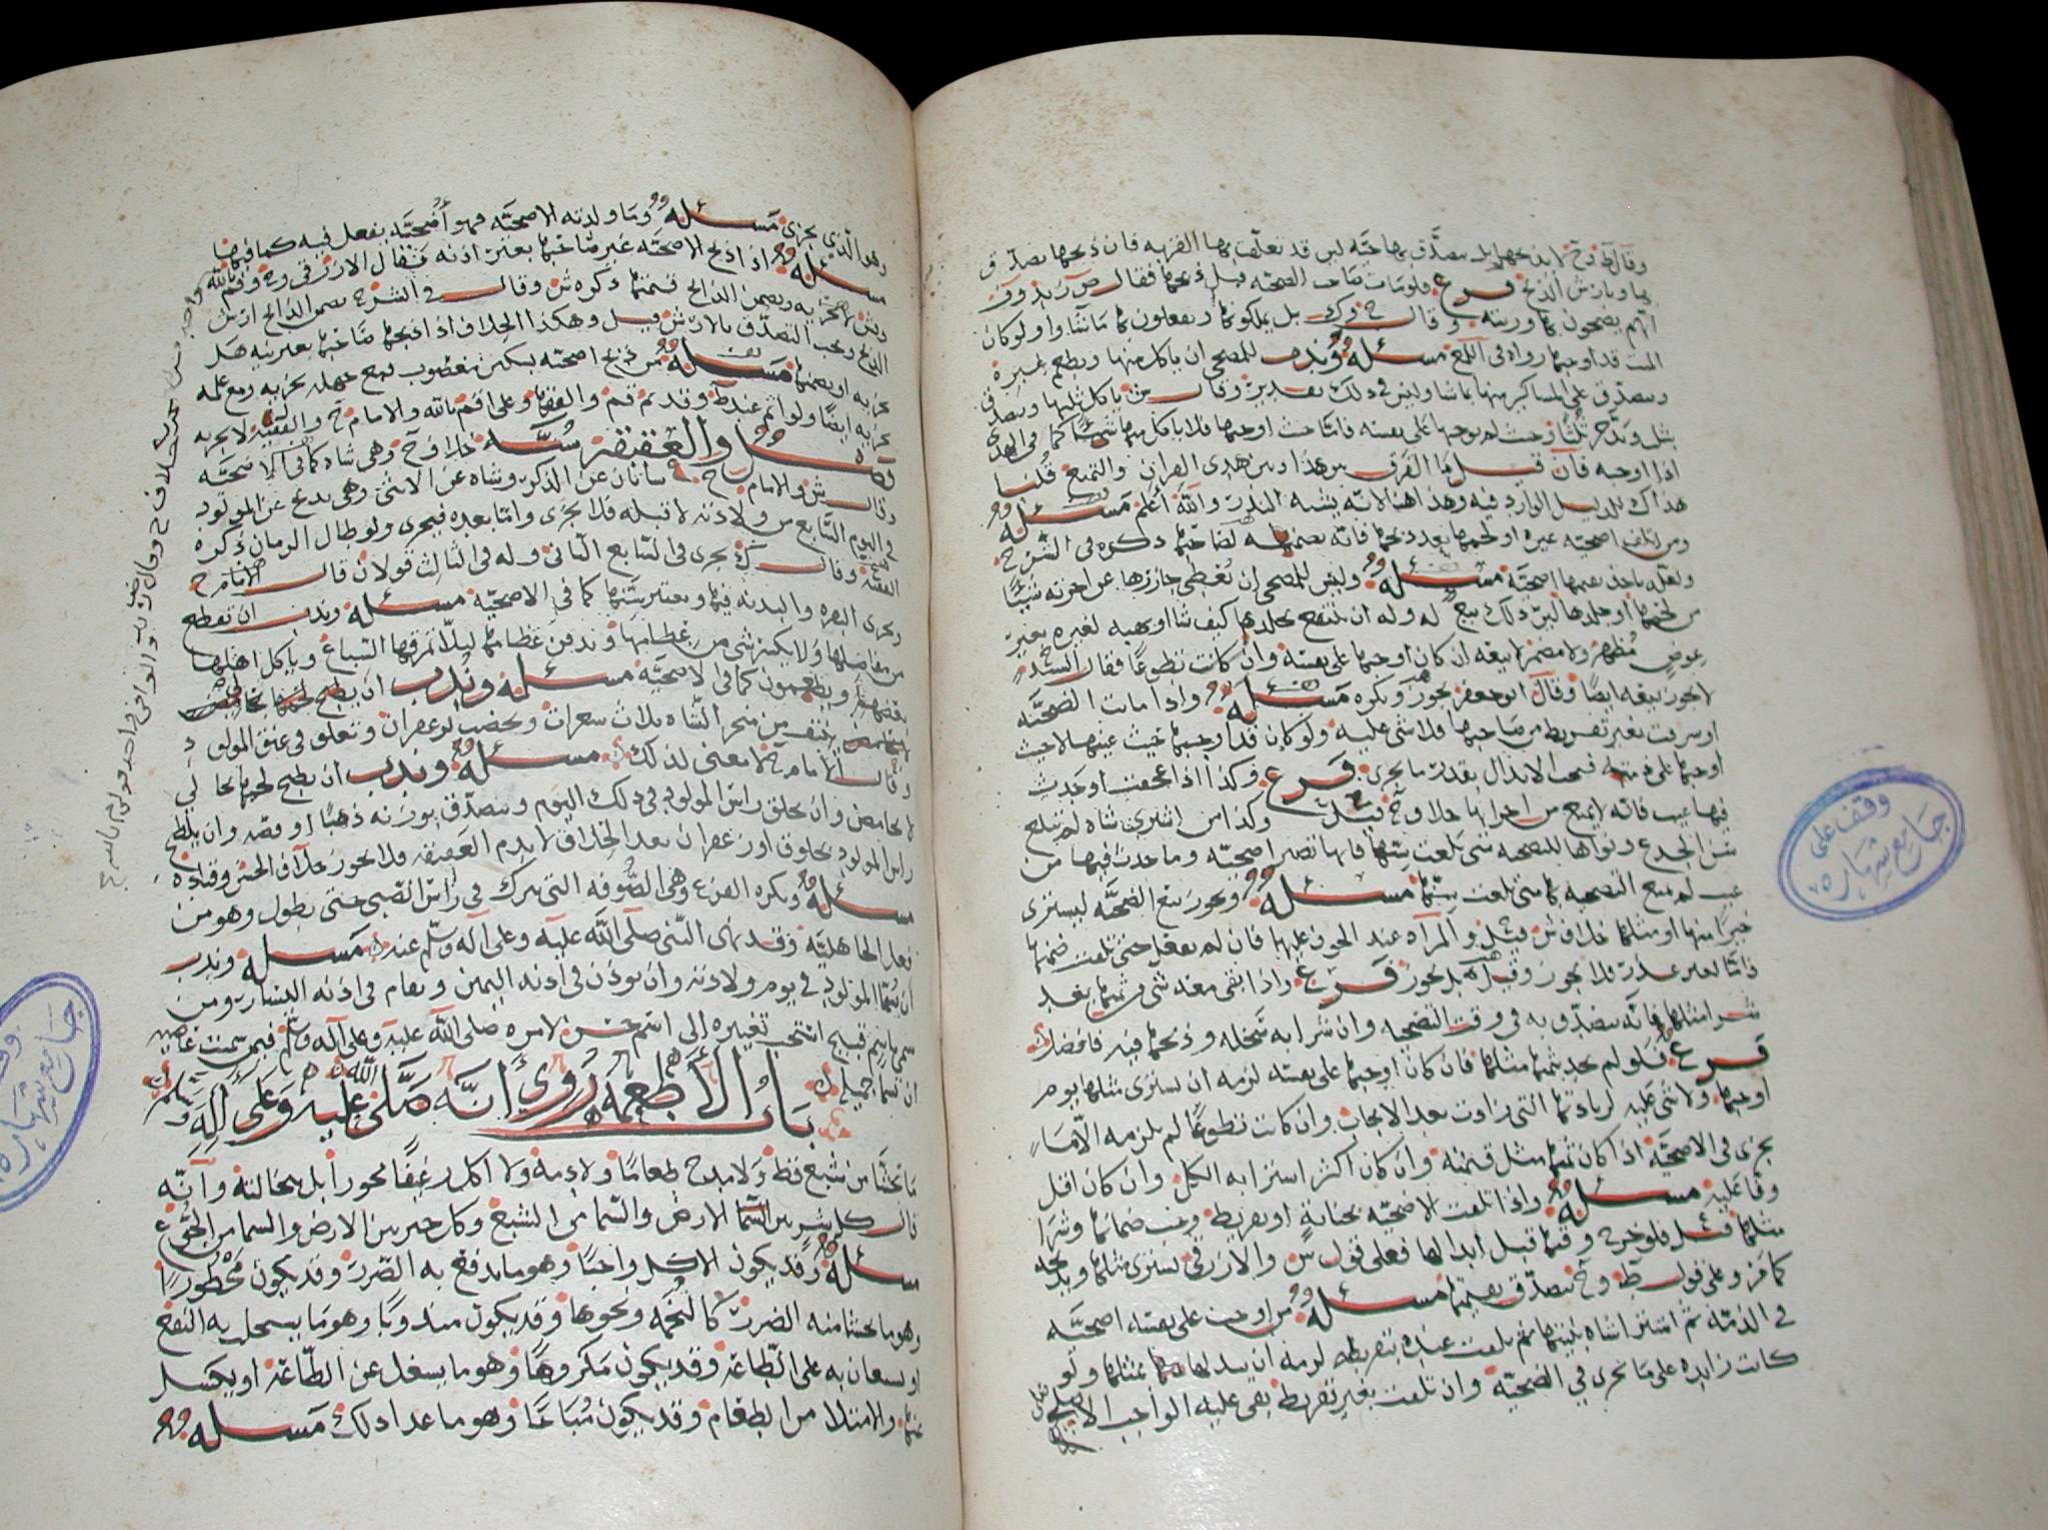 وقال ط وح لا يذبحها بل يتصدق بها حية لين قد تعلقت بها القربة فان ذبحها تصدق
بها وبارش الذبح فرع فلو مات صاحب الضحية قبل ذبحها فقال ص زيد وف
انهم يضحون بها ورثته وقال ح وك بل يملكونها ويفعلون بها ما شاوا ولو كان
الميت قد اوجبها رواه في اللمع مسئله وندب للمضحي ان ياكل منها ويطعم غيره
ويتصدق على المساكين منها بما شا وليس في ذلك تقدير وقال ش ياكل ثلثها ويتصدق
بثلث ويدخر ثلثا وحيث لم يوجبها على نفسه فاما حيث اوجبها فلا ياكل منها شيئا كما في الهدي
اذا اوجبه فان قيل ما الفرق بين هذا وبين هدي القران والتمتع قلنا
هذاك للدليل الوارد فيه وهذا هنا لانه يشبه النذر والله أعلم مسئله
ومن اتلف اضحية غيره او لحمها بعد ذبحها فانه يضمنه لصاحبها ذكره في الشرح
ولعله ياخذ بقيمتها اضحية مسئله وليس للمضحي ان يعطي جازرها عن اجرته شيئا
من لحمها او جلدها لين ذلك بيع له وله ان ينتفع بجلدها كيف شا او يهبه لغيره بغير
عوض مظهر ولا مضمر لا بيعه ان كان اوجبها على نفسه وان كانت تطوعا فقال السيد
لا يجوز بيعه ايضا وقال ابو جعفر يجوز ويكره مسئله واذا ماتت الضحية
او سرقت بغير تفريط من صاحبها فلا شي عليه ولو كان قد اوجبها حيث عينها لا حيث
اوجبها على ذمته فيجب الابدال بقدر ما يجزي فرع وكذا اذا عجفت او حدث
فيها عيب فانه لا يمنع من اجزائها خلاف ح قيل وكذا من اشترى شاه لم تبلغ
سن الجذع ونواها للتضحيه متى بلغت سنها فانها تصير اضحية وما حدث فيها من
عيب لم يمنع التضحيه بها متى بلغت سنها مسئله ويجوز بيع الضحية ليشتري
خيرا منها او مثلها خلاف ش قيل والمراد عند الخوف عليها فان لم يفعل حتى تلفت ضمنها
فاما لغير عذر فلا يجوز وقيل بل يجوز فرع واذا بقى معه شي من ثمنها بعد
شرا مثلها فانه يتصدق به في وقت التضحيه وان شرا به سخله وذبحها فيه فافضل
فرع فلو لم يجد بثمنها مثلها فان كان اوجبها على نفسه لزمه ان يشتري مثلها يوم
اوجبها ولا شي عليه لزيادتها التي زادت بعد الايجاب وان كانت تطوعا لم يلزمه الا ما
يجزي في الاضحية اذا كان ثمنها مثل قيمته وان كان اكثر اشترا به الكل وان كان اقل
وفا عليه مسئله واذا تلفت الاضحيه بجناية او تفريط وجب ضمانها وشرا
مثلها قيل فلو خرج وقتها قبل ابدالها فعلى قول س والازرقي يشتري مثلها ويذبحه
كما مر وعلى قول ط وح يتصدق بقيمتها مسئله من اوجب على نفسه اضحية
في الذمة ثم اشترا شاه بنيتها ثم تلفت عنده بتفريطه لزمه ان يبدلها بمثلها ولو
كانت زايده على ما يجزي في الضحية وان تلفت بغير تفريط بقى عليه الواجب الاصلي
وقف على
جامع شهاره
وهو الذي يجزي مسئله وما ولدته الاضحية فهو أضحية يفعل فيه كما فيها
مسئله اذا ذبح الاضحية غير صاحبها بغير اذنه فقال الازرقي وح وقم بالله
وش تجزيه ويضمن الذابح قيمتها ذكره ش وقال في الشرح يضمن الذابح ارش
الذبح ويجب التصدق بالارش قيل وهكذا الخلاف اذا ذبحها صاحبها بغير نيه هل
تجزيه او يضمنها مسئله من ذبح اضحيته بسكين مغصوب فمع جهله تجزيه ومع علمه
تجزيه ايضا ولو اثم عند ط وقد تم قم والفقها وعلى اقم بالله والامام ح والفقيه لا تجزيه
فصل والعقيقة سنة خلاف ح وهي شاه كما في الاضحية
وقال ش والامام ح شاتان عن الذكر وشاه عن الانثى وهي تذبح عن المولود
في اليوم السابع من ولادته لا قبله فلا تجزي واما بعده فيجزي ولو طال الزمان ذكره
الفقيه وقال ك تجزي في السابع الثاني وله في الثالث قولان قال الامام ح
وتجزي البقره والبدنه فيها ويعتبر سنها كما في الاضحيه مسئله وندب ان تقطع
من مفاصلها ولا يكسر شي من عظامها وتدفن عظامها ليلا تفرقها السباع وياكل اهلها
بعضها ويطعمون كما في الاضحية مسئله وندب ان يطبخ لحمها بحامض
ينتف من منحر الشاه ثلاث شعرات ويخضب بزعفران وتعلق في عنق المولود
وقال الامام ح لا معنى لذلك مسئله وندب ان يطبخ لحمها بحالي
لا بحامض وان يحلق راس المولود في ذلك اليوم ويتصدق بوزنه ذهبا او فضه وان يلطخ
راس المولود بخلوق او زعفران بعد الحلاق لا بدم العقيقه فلا يجوز خلاف الحسن وقتاده
مسئله ويكره القزع وهي الصوفه التي تترك في راس الصبي حتى تطول وهو من
فعل الجاهلية وقد نهى النبي صلى الله عليه وعلى آله وسلم عنه مسئله وندب
ان يسما المولود في يوم ولادته وان يوذن في اذنه اليمين ويقام في اذنه اليسار ومن
سمي باسم قبيح استحب تغييره إلى اسم حسن لامره صلى الله عليه وعلى آله وسلم فيمن سميت عاصيه
ان تسما جميله
باب الأطعمة روي أنه صلى الله عليه وعلى آله وسلم
ما تجشا من شبع قط ولا مدح طعاما ولا ذمه ولا اكل رغيفا محورا بل بنخالته وانه
قال كل شر بين السما والارض من الشبع وكل خير بين الارض والسما من الجوع
مسئله وقد يكون الاكل واجبا وهو ما يدفع به الضرر وقد يكون محظورا
وهو ما يخشا منه الضرر كالتخمه ونحوها وقد يكون مندوبا وهو ما يستجلب به النفع
او يستعان به على الطاعة وقد يكون مكروها وهو ما يشغل عن الطاعة او يكسل
عنها والامتلا من الطعام وقد يكون مباحا وهو ما عدا ذلك مسئله
وقف على
جامع شهاره